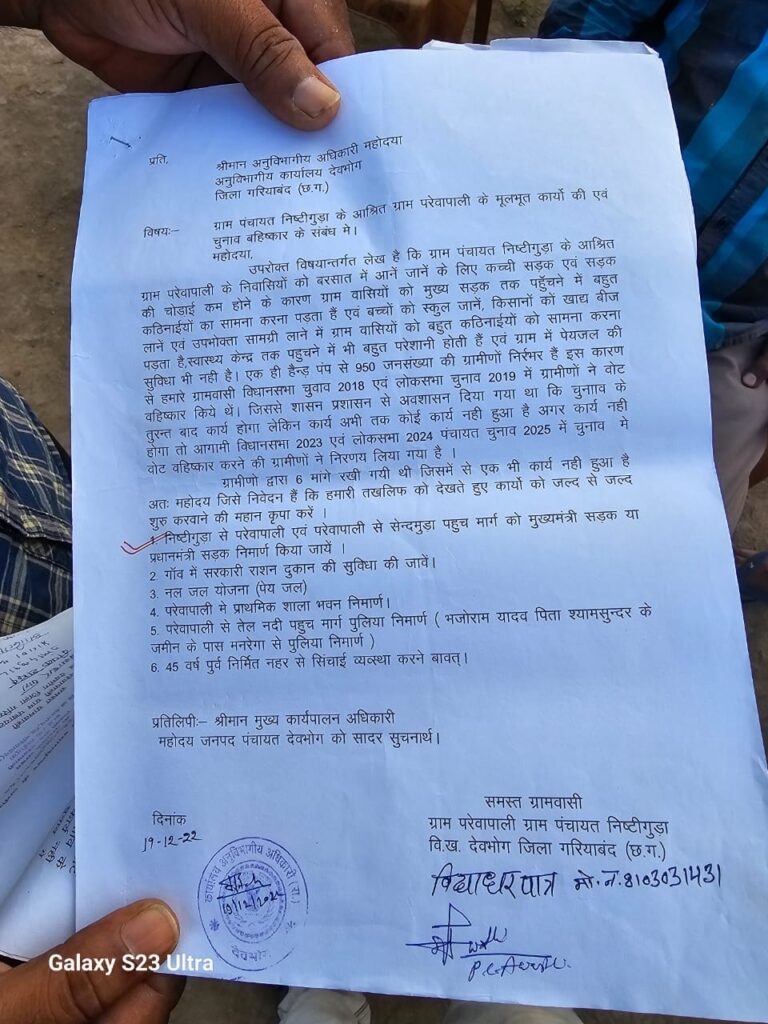 प्रति,
श्रीमान अनुविभागीय अधिकारी महोदया
अनुविभागीय कार्यालय देवभोग
जिला गरियाबंद (छ.ग.)
विषयः– ग्राम पंचायत निष्टीगुड़ा के आश्रित ग्राम परेवापाली के मूलभूत कार्यो की एवं
चुनाव बहिष्कार के संबंध मे।
महोदया,
उपरोक्त विषयान्तर्गत लेख है कि ग्राम पंचायत निष्टीगुड़ा के आश्रित
ग्राम परेवापाली के निवासियों को बरसात में आनें जानें के लिए कच्ची सड़क एवं सड़क
की चोड़ाई कम होने के कारण ग्राम वासियों को मुख्य सड़क तक पहुँचने में बहुत
कठिनाईयों का सामना करना पड़ता हैं एवं बच्चों को स्कुल जानें, किसानों कों खाद्य बीज
लानें एवं उपभोक्ता सामग्री लाने में ग्राम वासियों को बहुत कठिनाईयों को सामना करना
पड़ता है,स्वास्थ्य केन्द्र तक पहुचने में भी बहुत परेशानी होती हैं एवं ग्राम में पेयजल की
सुविधा भी नही है। एक ही हैन्ड़ पंप से 950 जनसंख्या की ग्रामीणों निर्रभर हैं इस कारण
से हमारे ग्रामवासी विधानसभा चुवाव 2018 एवं लोकसभा चुनाव 2019 में ग्रामीणों ने वोट
वहिष्कार किये थें। जिससे शासन प्रशासन से अवशासन दिया गया था कि चुनााव के
तुरन्त बाद कार्य होगा लेकिन कार्य अभी तक कोई कार्य नही हुआ है अगर कार्य नही
होगा तो आगामी विधानसभा 2023 एवं लोकसभा 2024 पंचायत चुनाव 2025 में चुनाव मे
वोट वहिष्कार करने की ग्रामीणों ने निरणय लिया गया है ।
ग्रामीणो द्वारा 6 मांगे रखी गयी थी जिसमें से एक भी कार्य नही हुआ है
अतः महोदय जिसे निवेदन हैं कि हमारी तखलिफ को देखते हुए कार्यो को जल्द से जल्द
शुरु करवाने की महान कृपा करें ।
1 निष्टीगुड़ा से परेवापाली एवं परेवापाली से सेन्दमुड़ा पहुच मार्ग को मुख्यमंत्री सड़क या
प्रधानमंत्री सड़क निमार्ण किया जायें ।
2. गॉव में सरकारी राशन दुकान की सुविधा की जावें।
3. नल जल योजना (पेय जल)
4. परेवापाली मे प्राथमिक शाला भवन निमार्ण।
5. परेवापाली से तेल नदी पहुच मार्ग पुलिया निमार्ण ( भजोराम यादव पिता श्यामसुन्दर के
जमीन के पास मनरेगा से पुलिया निमार्ण )
6. 45 वर्ष पुर्व निर्मित नहर से सिंचाई व्यवस्था करने बावत्।
प्रतिलिपीः– श्रीमान मुख्य कार्यपालन अधिकारी
महोदय जनपद पंचायत देवभोग को सादर सुचनार्थ।
समस्त ग्रामवासी
दिनांक
ग्राम परेवापाली ग्राम पंचायत निष्टीगुड़ा
19-12-22
वि.ख. देवभोग जिला गरियाबंद (छ.ग.)
विद्याधर पात्र मो.न. 8103031431
कार्यालय अनुविभागीय अधिकारी (रा.)
देवभोग
Galaxy S23 Ultra